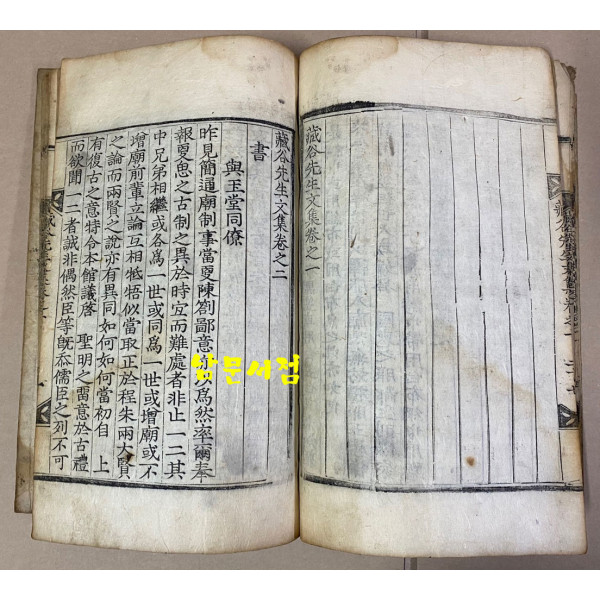 藏谷先生文集卷之一
藏谷先生文集卷之二
書
與玉堂同僚
昨見簡通廟制事當更陳劄鄙意亦以爲然率爾奉
報更思之古制之異於時宜而難處者非止一二其
中兄弟相繼或各爲一世或同爲一世或增廟或不
增廟前輩立論互相牴牾似當取正於程朱兩大賢
之論而兩賢之說亦有異同如何如何當初自 上
有復古之意特令本館議啓 聖明之留意於古禮
而欲聞一二者誠非偶然臣等旣忝儒臣之列不可
남문서점